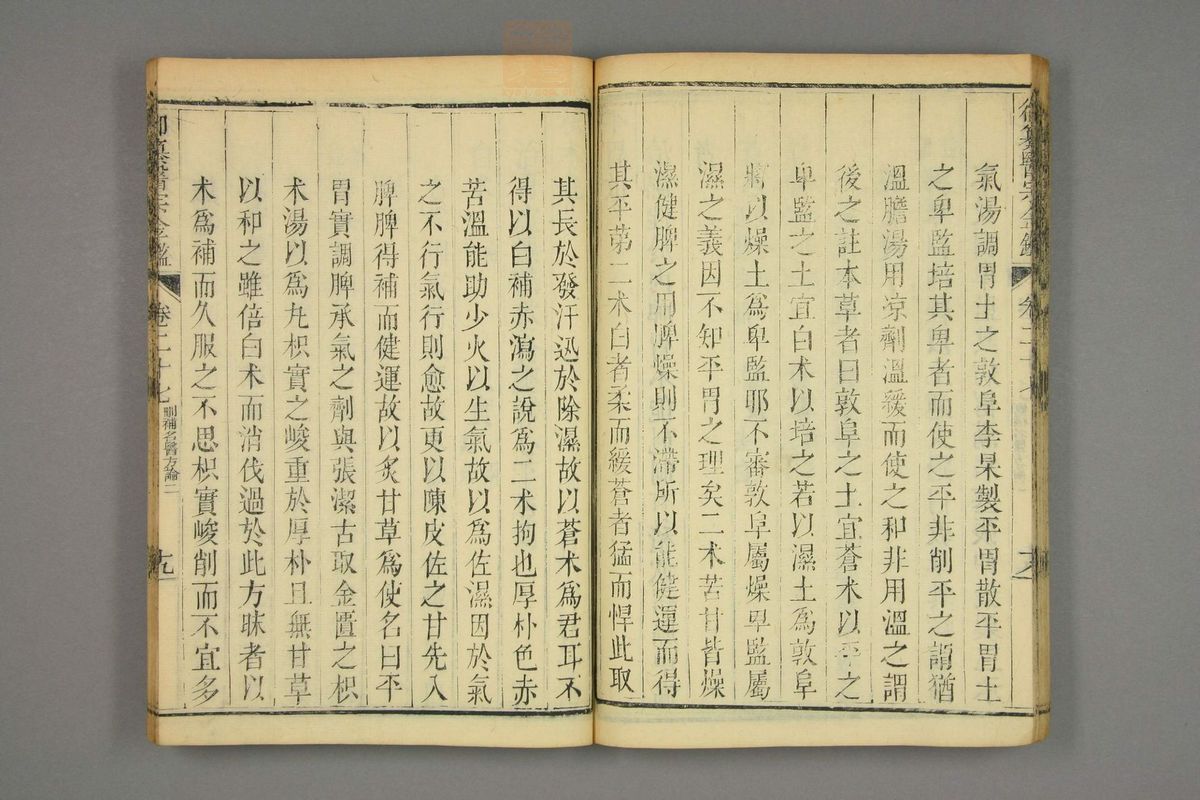 氣湯調胃土之敦阜李杲製平胃散平胃土
之卑監培其卑者而使之平非削平之謂猶
溫膽湯用涼劑溫緩而使之和非用溫之謂
後之註本草者曰敦阜之土宜蒼朮以平之
卑監之土宜白朮以培之若以濕土為敦阜
將以燥土為卑監耶不審敦阜屬燥卑監屬
濕之義因不知平胃之理矣二朮苦甘皆燥
濕健脾之用脾燥則不滯所以能健運而得
其平第二朮白者柔而緩蒼者猛而悍此取
其長於發汗迅於除濕故以蒼朮為君耳不
得以白補赤瀉之說為二朮拘也厚朴色赤
苦溫能助少火以生氣故以為佐濕因於氣
之不行氣行則愈故更以陳皮佐之甘先入
脾脾得補而健運故以炙甘草為使名曰平
胃實調脾承氣之劑與張潔古取金匱之枳
朮湯以為丸枳實之峻重於厚朴且無甘草
以和之雖倍白朮而消伐過於此方昧者以
朮為補而久服之不思枳實峻削而不宜多
御纂醫宗金鑑 卷二十七 刪補名醫方論二 十九